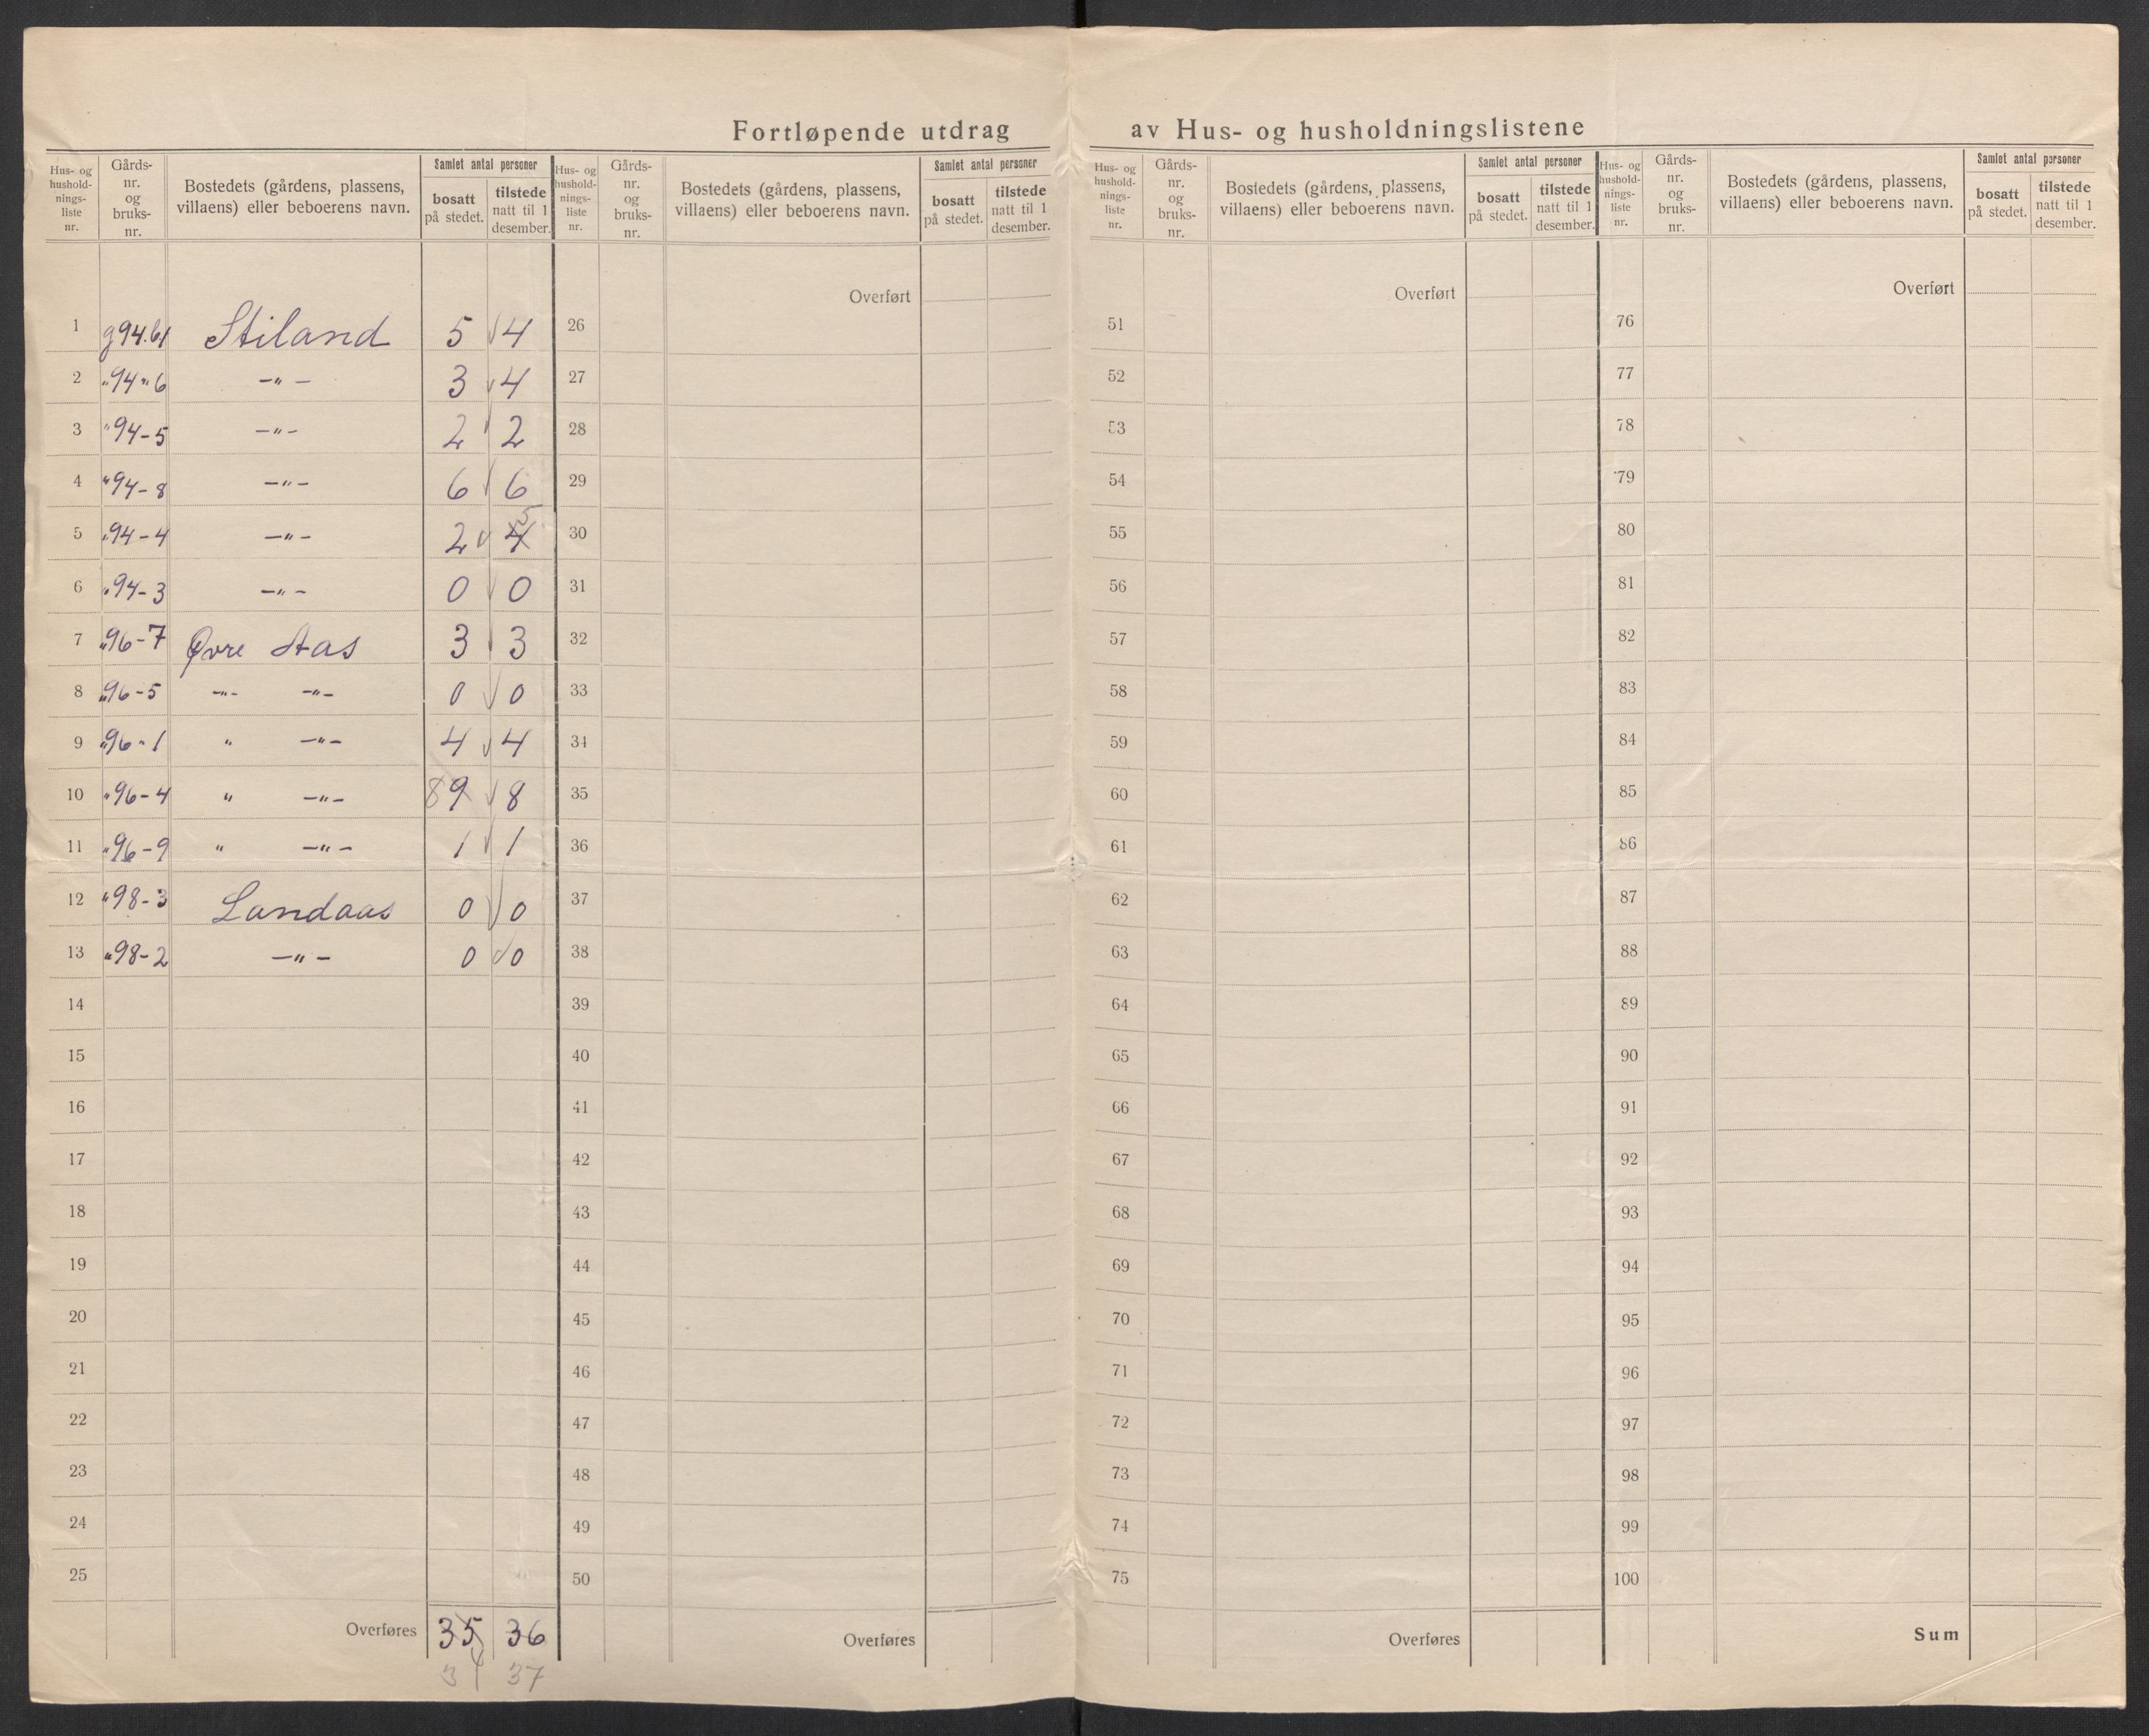 Fortløpende utdrag av Hus- og husholdningslistene
Hus- og hushold-nings-liste nr. Gårds-nr. og bruks-nr. Bostedets (gårdens, plassens, villaens) eller beboerens navn. Samlet antal personer bosatt på stedet. tilstede natt til 1 desember.
Hus- og hushold-nings-liste nr. Gårds-nr. og bruks-nr. Bostedets (gårdens, plassens, villaens) eller beboerens navn. Samlet antal personer bosatt på stedet. tilstede natt til 1 desember.
Hus- og hushold-nings-liste nr. Gårds-nr. og bruks-nr. Bostedets (gårdens, plassens, villaens) eller beboerens navn. Samlet antal personer bosatt på stedet. tilstede natt til 1 desember.
Hus- og hushold-nings-liste nr. Gårds-nr. og bruks-nr. Bostedets (gårdens, plassens, villaens) eller beboerens navn. Samlet antal personer bosatt på stedet. tilstede natt til 1 desember.
Overført Overført Overført
1 g94.b1 Stiland 5 √ 4 26 51 76
2 "94"6 -"- 3 √ 4 27 52 77
3 "94-5 -"- 2 √ 2 28 53 78
4 "94-8 -"- 6 √ 6 29 54 79
5 "94-4 -"- 2 √ 4 5 30 55 80
6 "94-3 -"- 0 √ 0 31 56 81
7 "96-7 Øvre Aas 3 √ 3 32 57 82
8 "96-5 -"- -"- 0 √ 0 33 58 83
9 "96"1 " -"- 4 √ 4 34 59 84
10 "96-4 " -"- 8 9 √ 8 35 60 85
11 "96-9 " -"- 1 √ 1 36 61 86
12 "98-3 Landaas 0 √ 0 37 62 87
13 "98-2 -"- 0 √ 0 38 63 88
14 39 64 89
15 40 65 90
16 41 66 91
17 42 67 92
18 43 68 93
19 44 69 94
20 45 70 95
21 46 71 96
22 47 72 97
23 48 73 98
24 49 74 99
25 50 75 100
Overføres 35 36 Overføres Overføres Sum
34 37